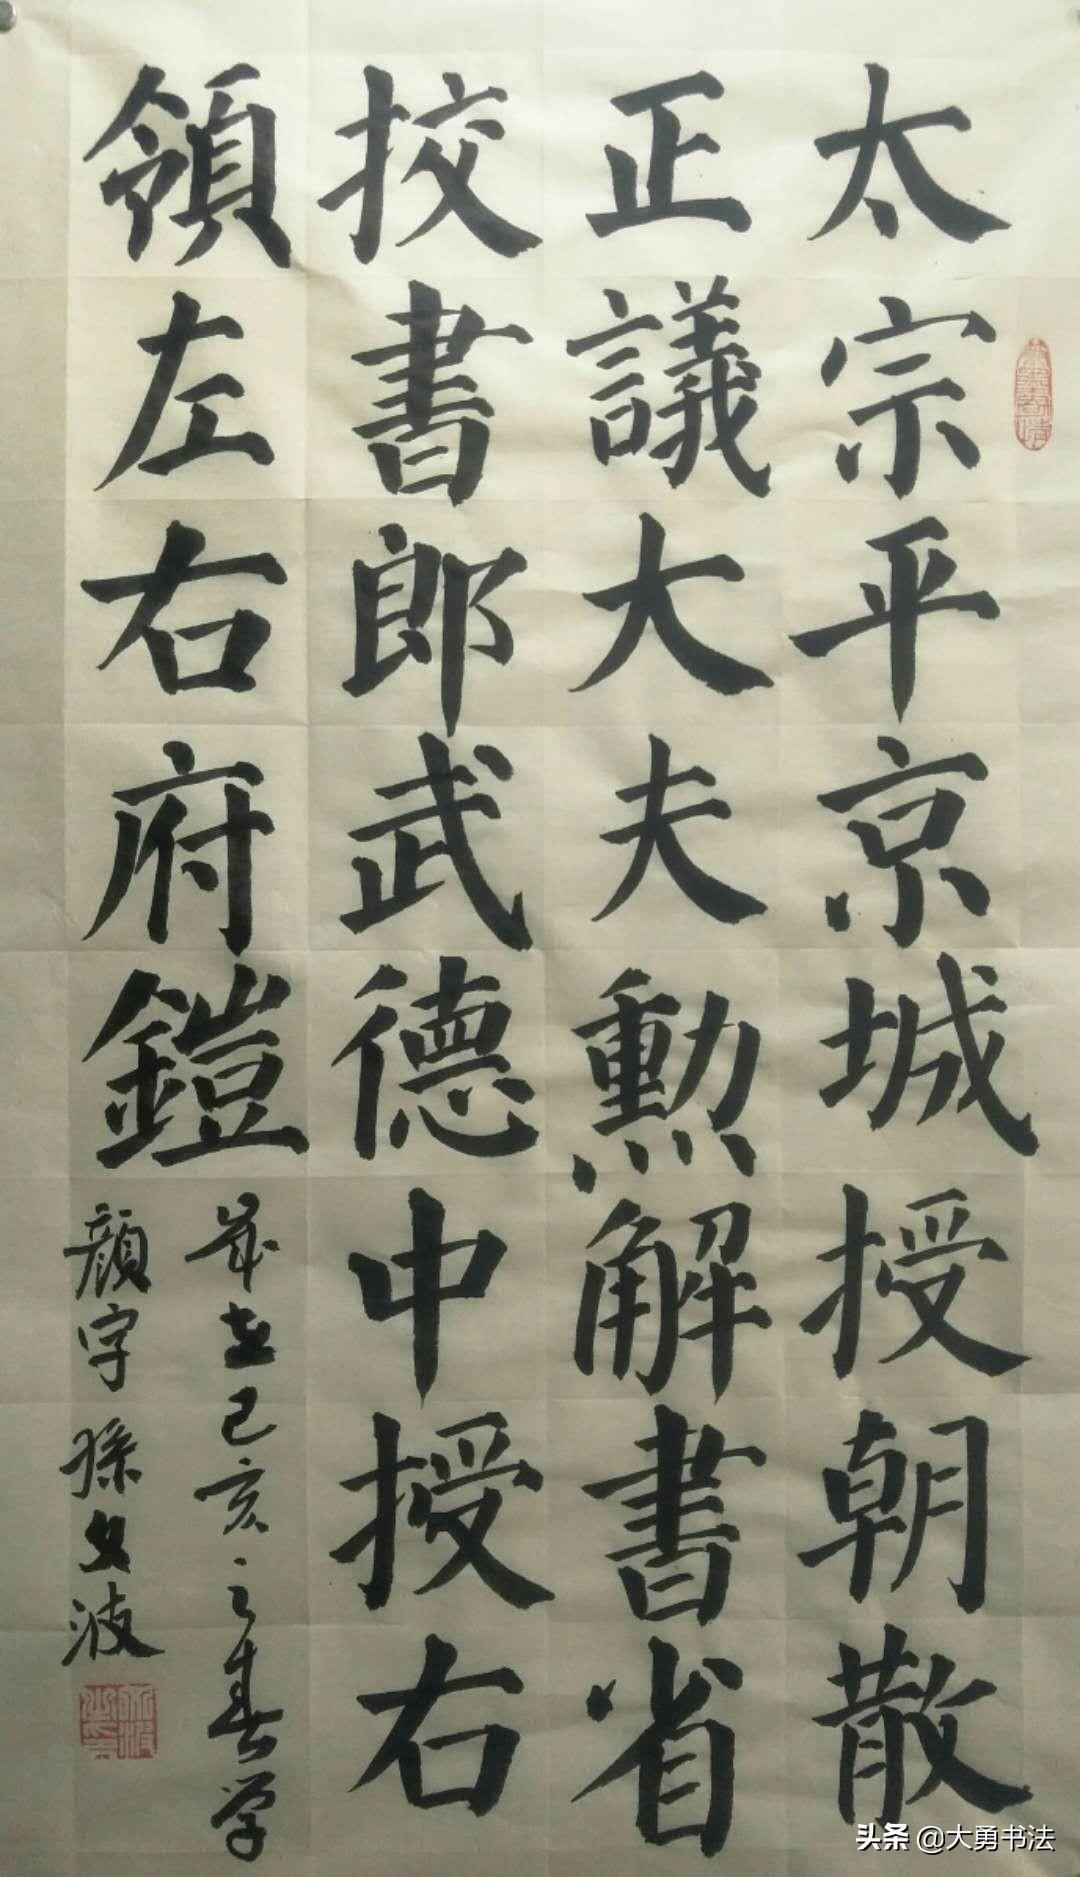 太宗平京城授朝散
正議大夫勲解書省
挍書郎武德中授右
領左右府鎧
歲在己亥之春学
顔字孫文波
头条 @大勇书法